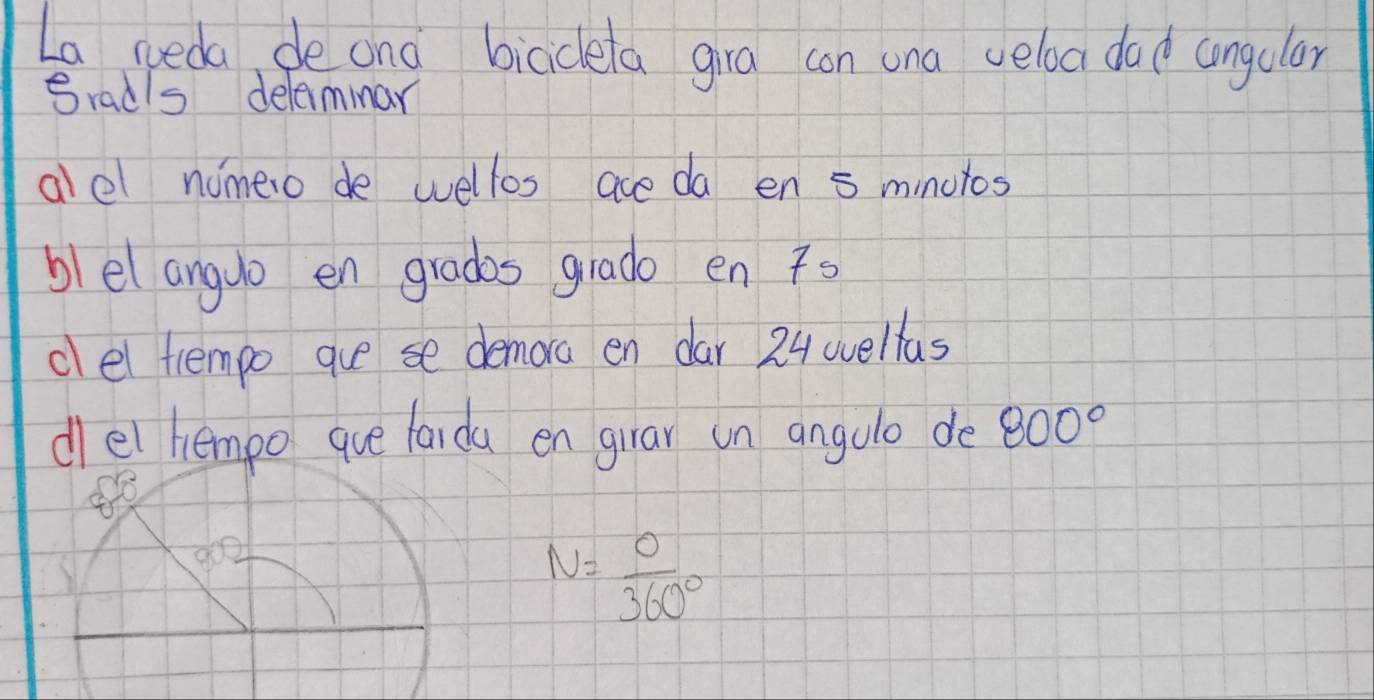 La rueda de una bicicleta gira con una velocidad angular
5rad/s determinar
a) el número de vueltos que da en 5 minutos
b) el angulo en grados girado en 7s
c) el tiempo que se demora en dar 24 vueltas
d) el tiempo que tarda en girar un angulo de 800°
800
N= θ/360°